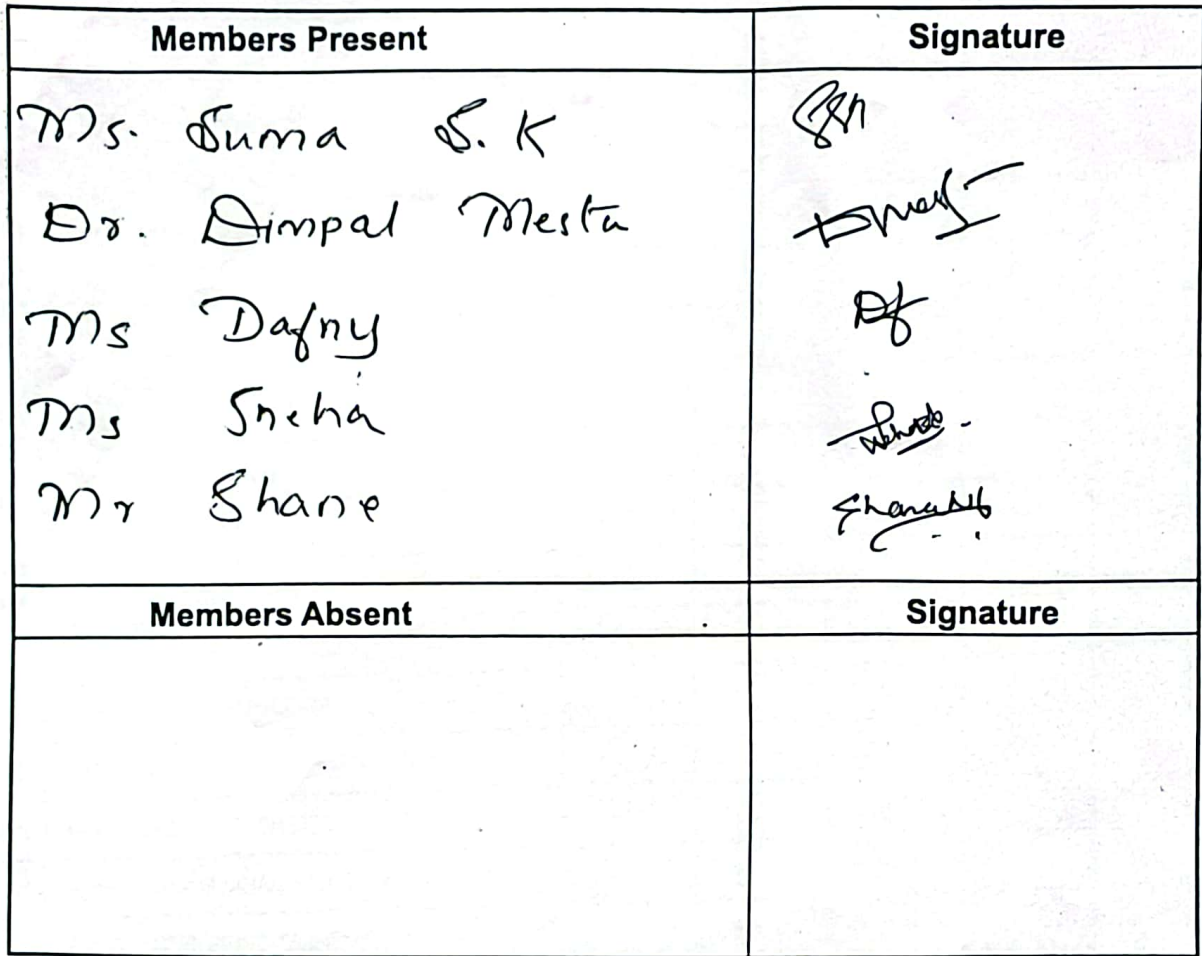 Members Present Signature
Ms. Suma S. K
Dr. Dimpal Mesta
Ms Dafny
Ms Sneha
Mr Shane
Members Absent Signature